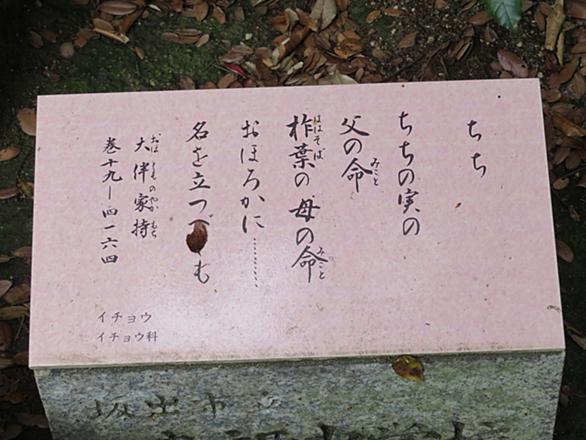 ちち
ちちの実の
父の命
みこと
柞葉の母の命
ははそば
みこと
おほろかに…………
名を立つべも
大伴家持
おほとものやかもち
巻十九－四一六四
イチョウ
イチョウ科
坂出市